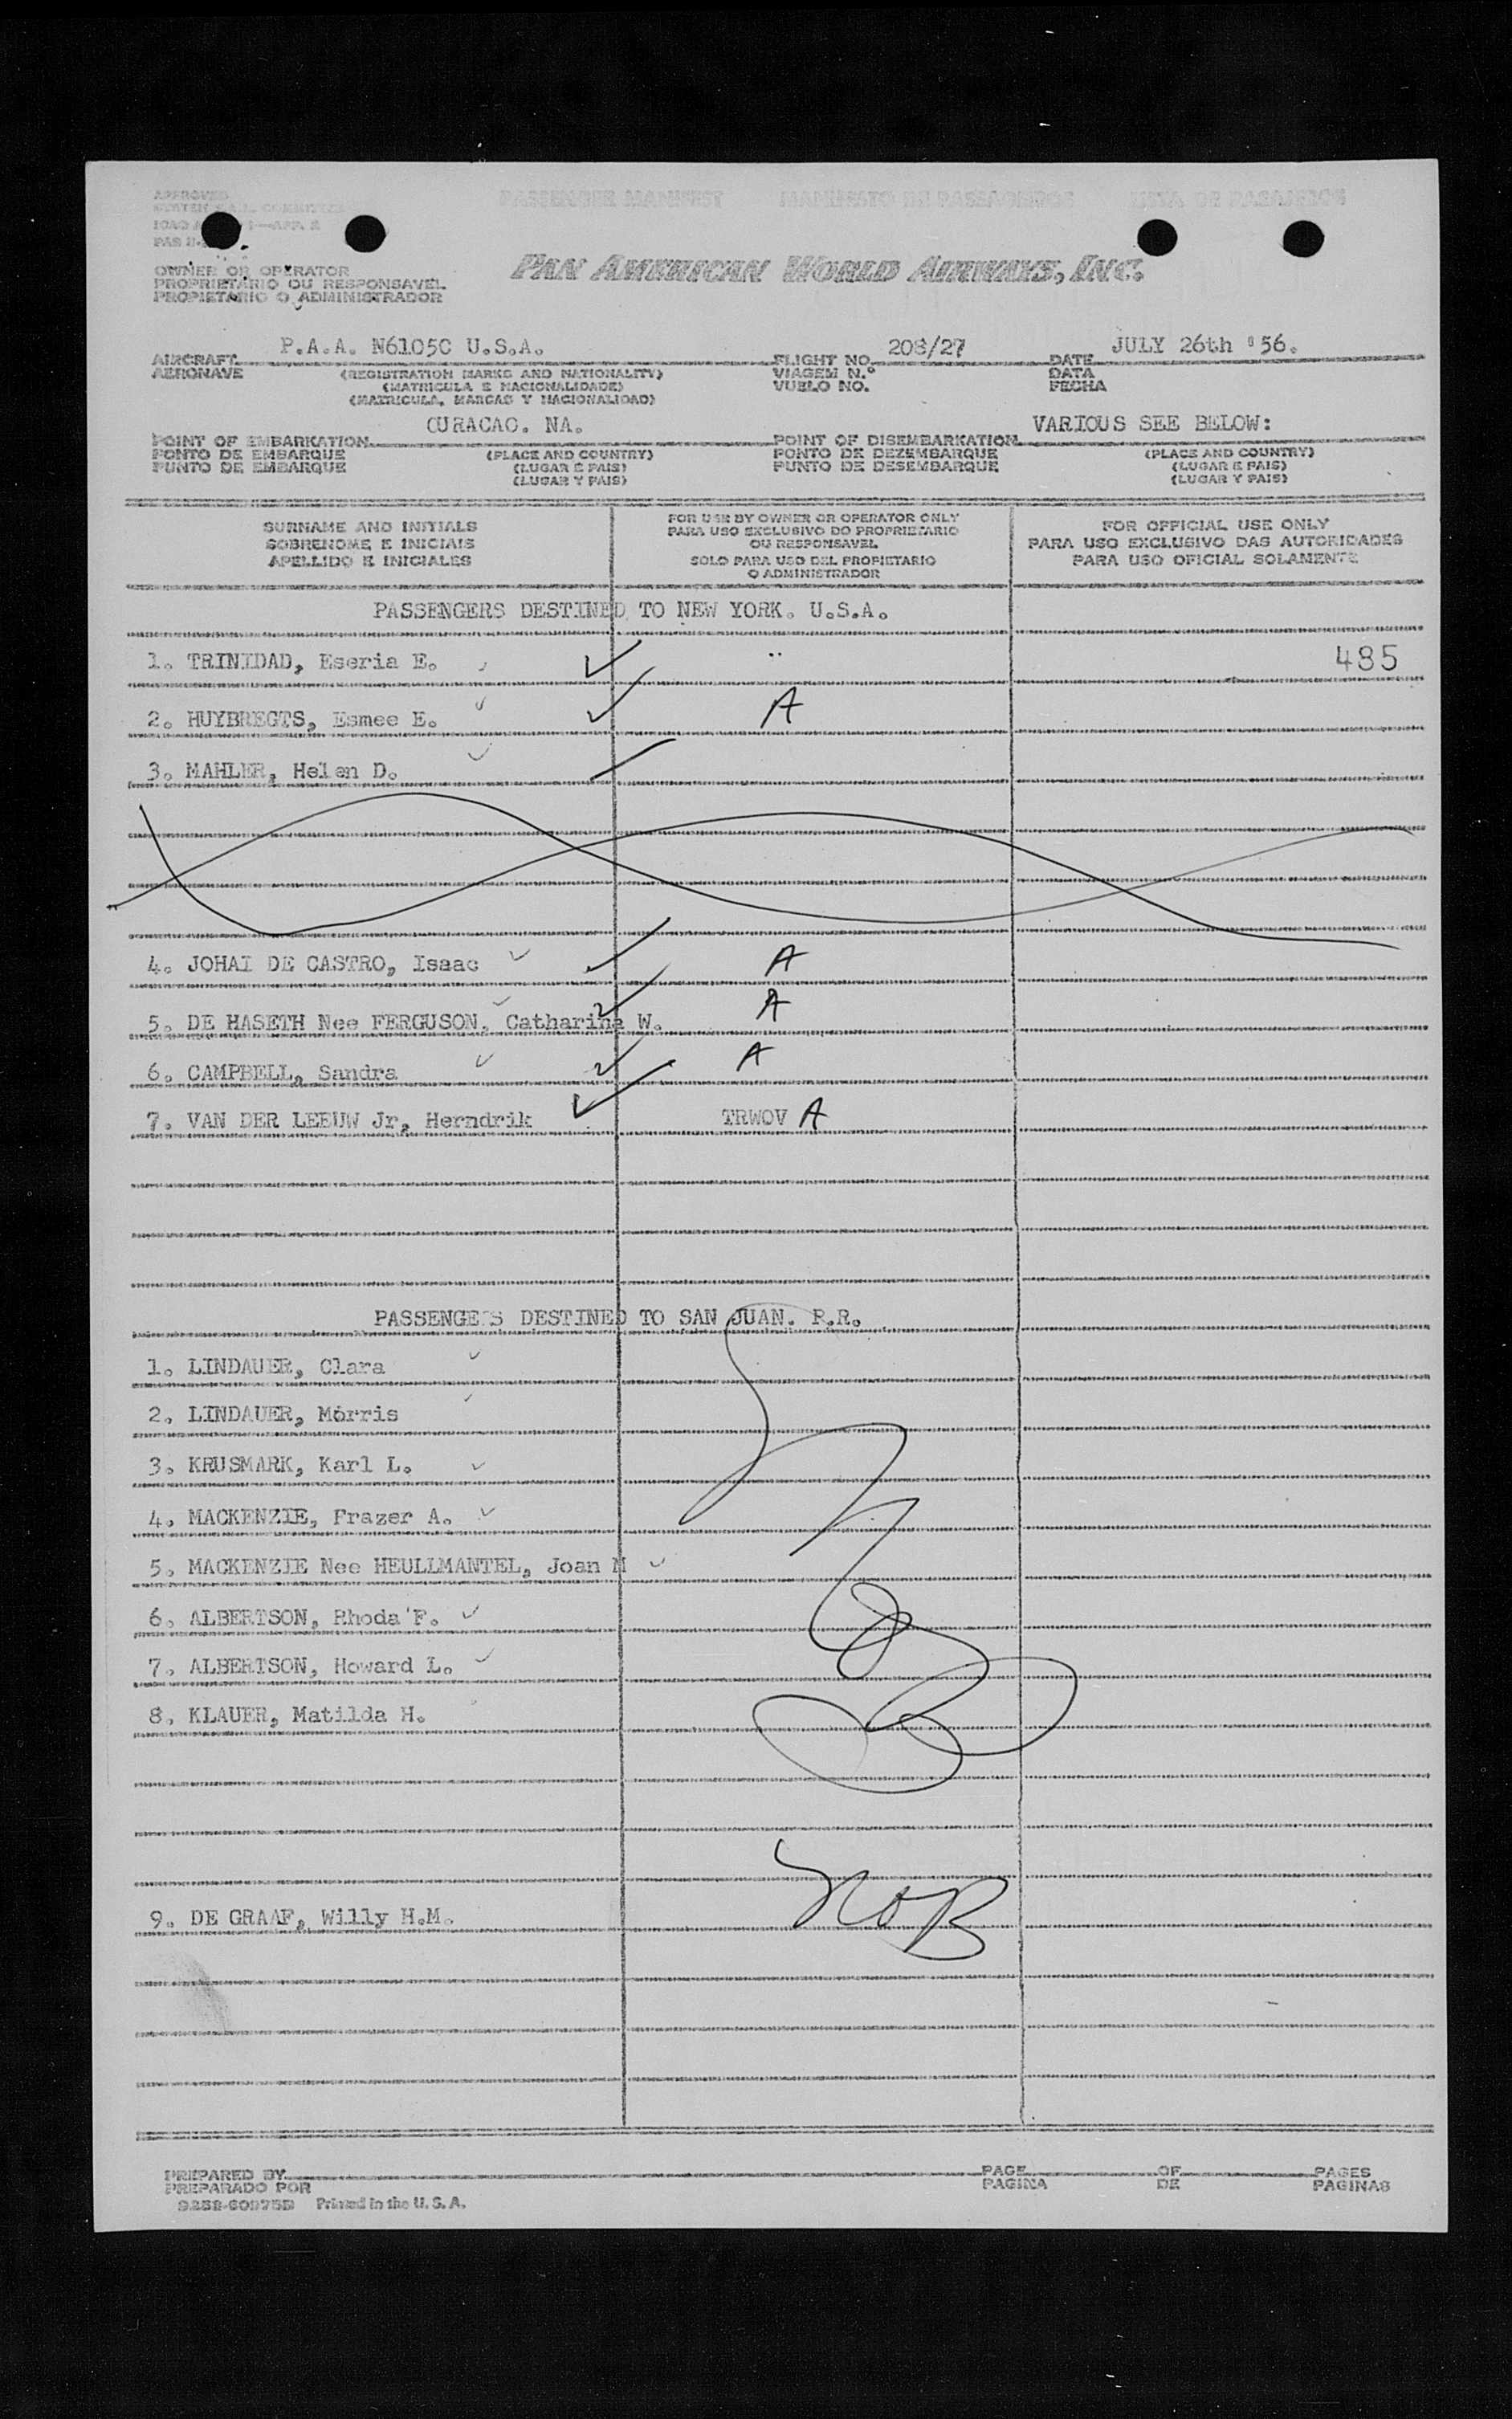 APPROVED
PASSENGER MANIFEST MANIFESTO DE PASSAGEIROS LISTA DE PASAJEROS
OWNER OR OPERATOR
PROPRIETARIO OU RESPONSAVEL
PROPIETARIO O ADMINISTRADOR
PAN AMERICAN WORLD AIRWAYS, INC.
P.A.A. N6105C U.S.A. 208/27 JULY 26th '56.
AIRCRAFT FLIGHT NO. DATE
AERONAVE (REGISTRATION MARKS AND NATIONALITY) VIAGEM N.º DATA
(MATRICULA E NACIONALIDADE) VUELO NO. FECHA
(MATRICULA, MARCAS Y NACIONALIDAD)
CURACAO. NA. VARIOUS SEE BELOW:
POINT OF EMBARKATION POINT OF DISEMBARKATION
PONTO DE EMBARQUE (PLACE AND COUNTRY) PONTO DE DEZEMBARQUE (PLACE AND COUNTRY)
PUNTO DE EMBARQUE (LUGAR E PAIS) PUNTO DE DESEMBARQUE (LUGAR E PAIS)
(LUGAR Y PAIS) (LUGAR Y PAIS)
SURNAME AND INITIALS FOR USE BY OWNER OR OPERATOR ONLY FOR OFFICIAL USE ONLY
SOBRENOME E INICIAIS PARA USO EXCLUSIVO DO PROPRIETARIO OU RESPONSAVEL PARA USO EXCLUSIVO DAS AUTORIDADES
APELLIDO E INICIALES SOLO PARA USO DEL PROPIETARIO O ADMINISTRADOR PARA USO OFICIAL SOLAMENTE
PASSENGERS DESTINED TO NEW YORK. U.S.A.
1. TRINIDAD, Eseria E. 485
2. HUYBREGTS, Esmee E. A
3. MAHLER, Helen D.
4. JOHAI DE CASTRO, Isaac A
5. DE HASETH Nee FERGUSON, Catharina W. A
6. CAMPBELL, Sandra A
7. VAN DER LEEUW Jr, Herndrik TRWOV A
PASSENGERS DESTINED TO SAN JUAN. P.R.
1. LINDAUER, Clara
2. LINDAUER, Morris
3. KRUSMARK, Karl L.
4. MACKENZIE, Frazer A.
5. MACKENZIE Nee HEULLMANTEL, Joan M
6. ALBERTSON, Rhoda F.
7. ALBERTSON, Howard L.
8. KLAUER, Matilda H.
9. DE GRAAF, Willy H.M. NOB
PREPARED BY PAGE OF PAGES
PREPARADO POR PAGINA DE PAGINAS
Printed in the U. S. A.